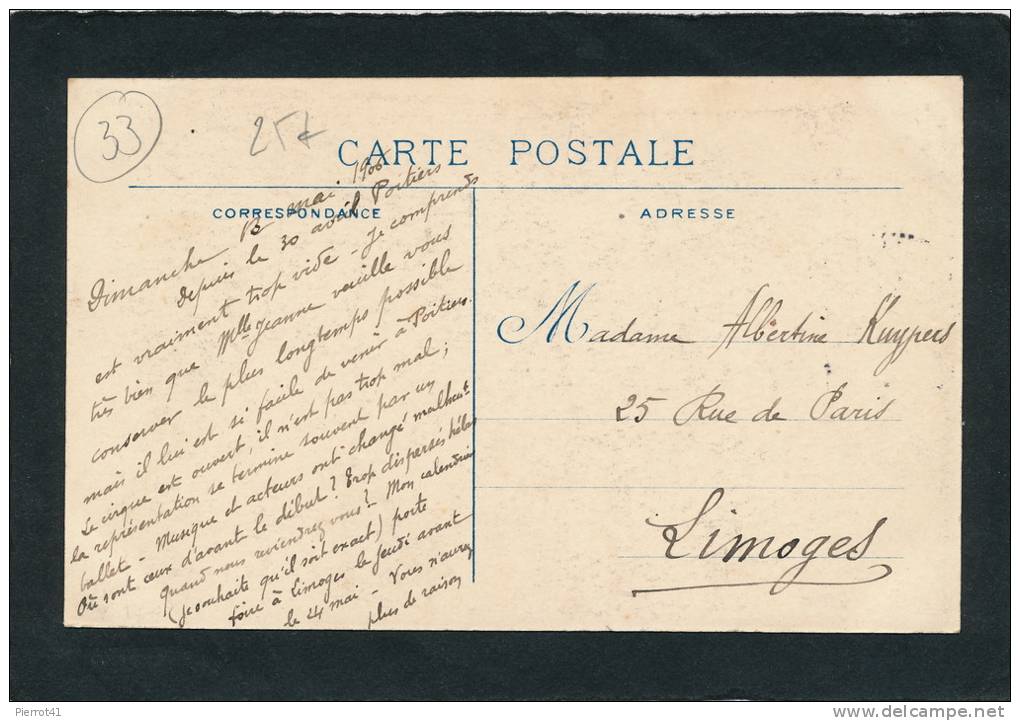 33
25
CARTE POSTALE
CORRESPONDANCE
ADRESSE
Dimanche 13 mai. 1906
depuis le 30 avril Poitiers
est vraiment trop vide - Je comprends
très bien que Mlle Jeanne veuille vous
conserver le plus longtemps possible
mais il lui est si facile de venir à Poitiers.
Le cirque est ouvert, il n'est pas trop mal;
la représentation se termine souvent par un
ballet - Musique et acteurs ont changé malheurt
Où sont ceux d'avant le début? Trop dispersés hélas
Quand nous reviendrez vous? Mon calendrier
(je souhaite qu'il soit exact) porte
foire à Limoges le jeudi avant
le 24 mai - Vous n'aurez
plus de raison
Madame Albertine Kuypers
25 Rue de Paris
Limoges
Pierrot41